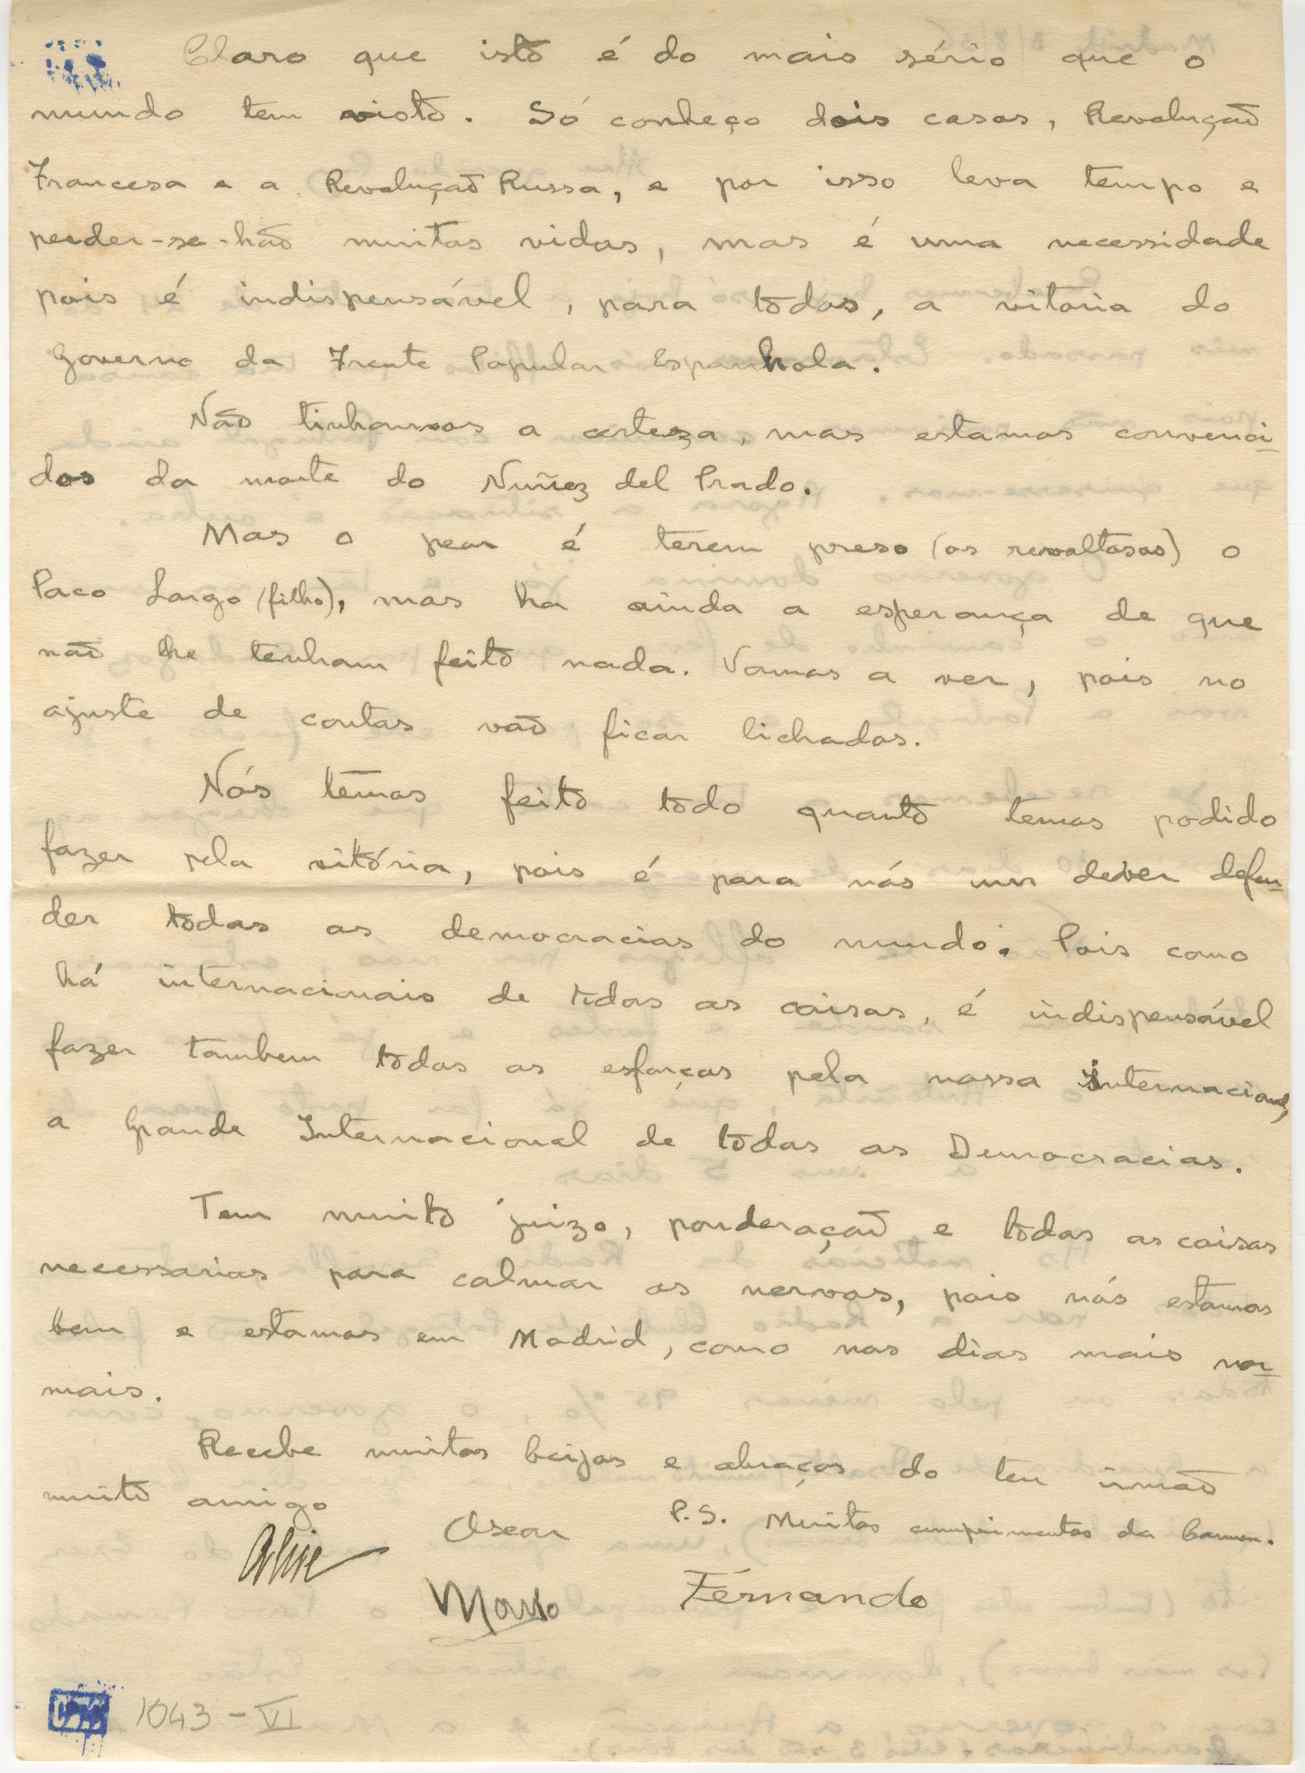 Claro que isto é do mais sério que o
mundo tem visto. Só conheço dois casos, Revolução
Francesa e a Revolução Russa, e por isso leva tempo e
perder-se-hão muitas vidas, mas é uma necessidade
pois é indispensável, para todos, a vitoria do
Governo da Frente Popular Espanhola.
Não tinhamos a certeza, mas estamos convenci-
dos da morte do Nuñez del Prado.
Mas o peor é terem preso (os revoltosos) o
Paco Largo (filho), mas ha ainda a esperança de que
não lhe tenham feito nada. Vamos a ver, pois no
ajuste de contas vão ficar lichados.
Nós temos feito todo quanto temos podido
fazer pela vitória, pois é para nós um dever defen-
der todas as democracias do mundo. Pois como
há internacionais de todas as coisas, é indispensável
fazer tambem todos os esforços pela nossa internacional,
a Grande Internacional de todas as Democracias.
Tem muito juizo, ponderação e todas as coisas
necessarias para calmar os nervos, pois nós estamos
bem e estamos em Madrid, como nos dias mais nor-
mais.
Recebe muitos beijos e abraços do teu irmão
muito amigo
Oscar
P.S. Muitos cumprimentos da Carmen.
Fernando
1043-VI